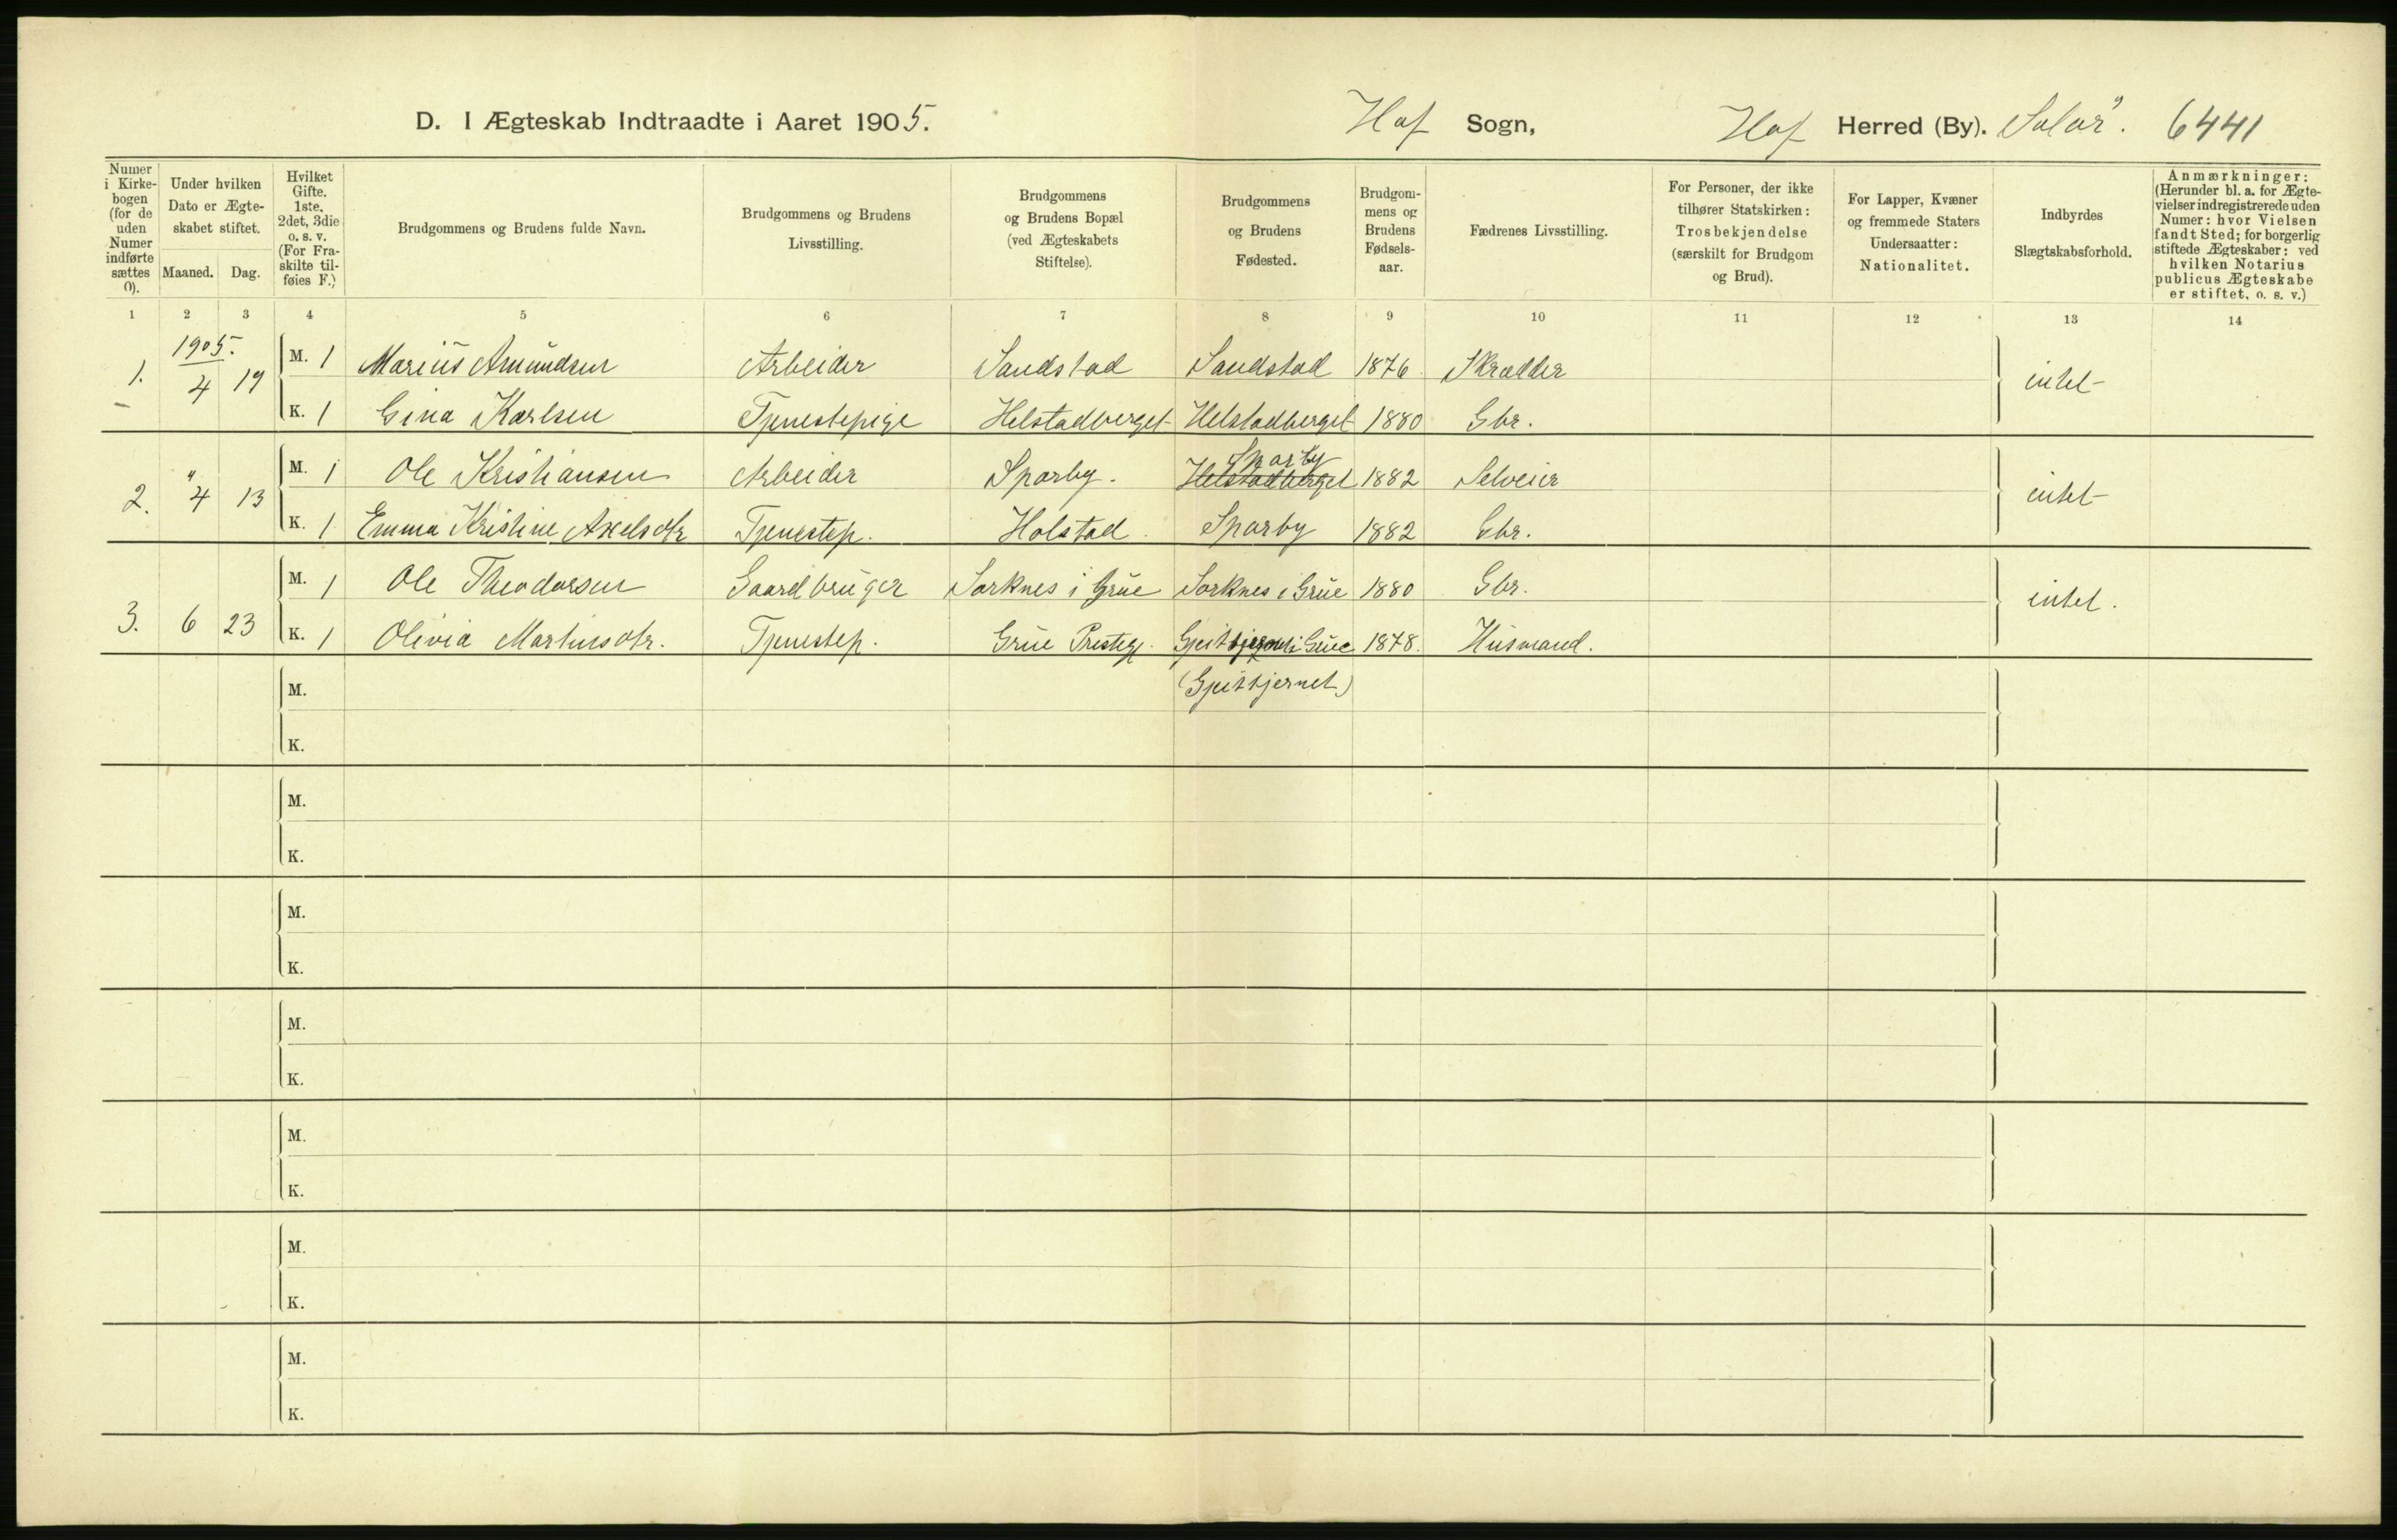 D. I Ægteskab Indtraadte i Aaret 1905. Hof Sogn, Hof Herred (By). Solør. 6441
Numer i Kirkebogen (for de uden Numer indførte sættes 0).
Under hvilken Dato er Ægteskabet stiftet.
Maaned. Dag.
Hvilket Gifte. 1ste, 2det, 3die o. s. v. (For Fraskilte tilføies F.)
Brudgommens og Brudens fulde Navn.
Brudgommens og Brudens Livsstilling.
Brudgommens og Brudens Bopæl (ved Ægteskabets Stiftelse).
Brudgommens og Brudens Fødested.
Brudgommens og Brudens Fødselsaar.
Fædrenes Livsstilling.
For Personer, der ikke tilhører Statskirken: Trosbekjendelse (særskilt for Brudgom og Brud).
For Lapper, Kvæner og fremmede Staters Undersaatter: Nationalitet.
Indbyrdes Slægtskabsforhold.
Anmærkninger: (Herunder bl. a. for Ægtevielser indregistrerede uden Numer: hvor Vielsen fandt Sted; for borgerlig stiftede Ægteskaber: ved hvilken Notarius publicus Ægteskabe er stiftet, o. s. v.)
1 2 3 4 5 6 7 8 9 10 11 12 13 14
1905.
1. 4 19 M. 1 Marius Amundsen Arbeider Sandstad Sandstad 1876 Skrædder intet
K. 1 Gina Karlsen Tjenestepige Helstadberget Helstadberget 1880 Gbr.
Sparby
2. " 4 13 M. 1 Ole Kristiansen Arbeider Sparby. Helstadberget 1882 Selveier intet
K. 1 Emma Kristine Axelsdtr Tjenestep. Holstad Sparby 1882 Gbr.
3. 6 23 M. 1 Ole Theodorsen Gaardbruger Sorknes i Grue Sorknes i Grue 1880 Gbr. intet.
K. 1 Olivia Martinsdtr. Tjenestep. Grue Presteg. i Grue 1878. Husmand.
(Gjeitkjernet)
M.
K.
M.
K.
M.
K.
M.
K.
M.
K.
M.
K.
M.
K.